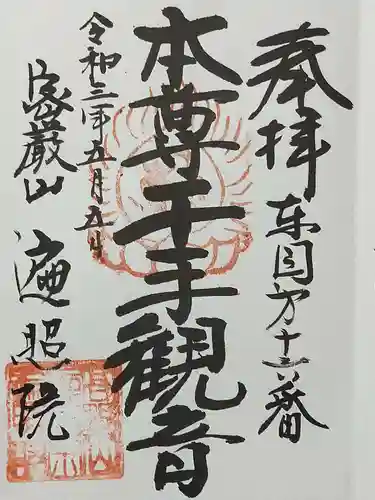 奉拝
東国六十三番
本尊千手観音
令和三年五月五日
密厳山
遍照院